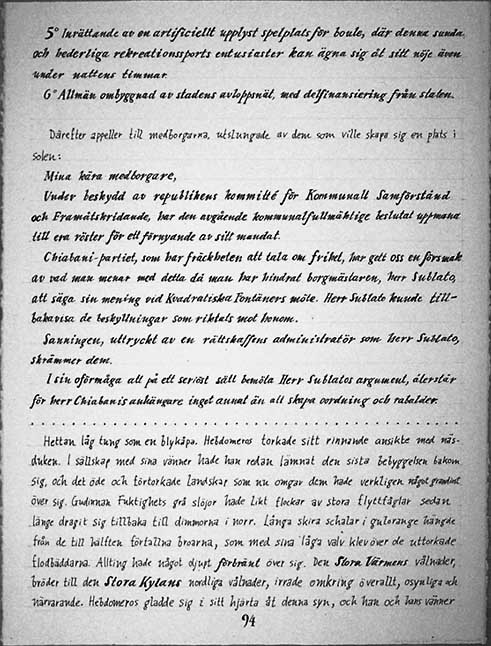 5° Inrättande av en artificiellt upplyst spelplats för boule, där denna sunda
och hederliga rekreationssports entusiaster kan ägna sig åt sitt nöje även
under nattens timmar.
6° Allmän ombyggnad av stadens avloppsnät, med delfinansiering från staten.
Därefter appeller till medborgarna, utslungade av dem som ville skapa sig en plats i
solen:
Mina kära medborgare,
Under beskydd av republikens kommitté för Kommunalt Samförstånd
och Framåtskridande, har den avgående kommunalfullmäktige beslutat uppmana
till era röster för ett förnyande av sitt mandat.
Chiabani-partiet, som har fräckheten att tala om frihet, har gett oss en försmak
av vad man menar med detta då man har hindrat borgmästaren, herr Sublato,
att säga sin mening vid Kvadratiska Fontäners möte. Herr Sublato kunde till-
bakavisa de beskyllningar som riktats mot honom.
Sanningen, uttryckt av en rättskaffens administratör som herr Sublato,
skrämmer dem.
I sin oförmåga att på ett seriöst sätt bemöta Herr Sublatos argument, återstår
för herr Chiabanis anhängare inget annat än att skapa oordning och rabalder.
Hettan låg tung som en blykåpa. Hebdomeros torkade sitt rinnande ansikte med näs-
duken. I sällskap med sina vänner hade han redan lämnat den sista bebyggelsen bakom
sig, och det öde och förtorkade landskap som nu omgav dem hade verkligen något grandiost
över sig. Gudinnan Fuktighets grå slöjor hade likt flockar av stora flyttfåglar sedan
länge dragit sig tillbaka till dimmorna i norr. Långa skira schalar i gulorange hängde
från de till hälften förfallna broarna, som med sina låga valv klev över de uttorkade
flodbäddarna. Allting hade något djupt förbränt över sig. Den Stora Värmens vålnader,
bröder till den Stora Kylans nordliga vålnader, irrade omkring överallt, osynliga och
närvarande. Hebdomeros gladde sig i sitt hjärta åt denna syn, och han och hans vänner
94